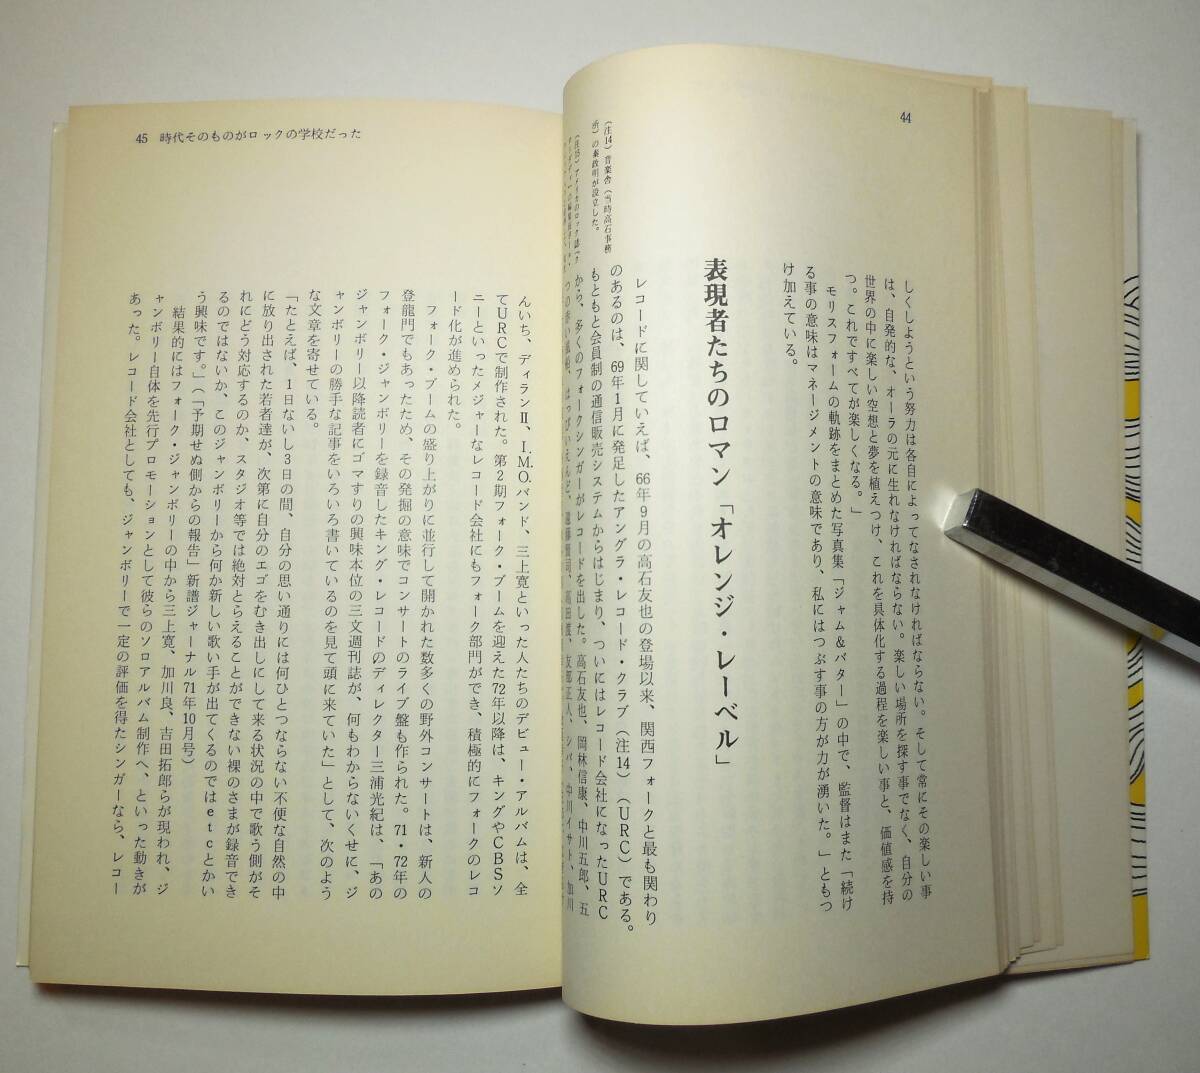 44
しくしようという努力は各自によってなされなければならない。そして常にその楽しい事
は、自発的な、オーラの元に生れなければならない。楽しい場所を探す事でなく、自分の
世界の中に楽しい空想と夢を植えつけ、これを具体化する過程を楽しい事と、価値感を持
つ。これですべてが楽しくなる。」
モリスフォームの軌跡をまとめた写真集「ジャム&バター」の中で、監督はまた「続け
る事の意味はマネージメントの意味であり、私にはつぶす事の方が力が湧いた。」ともつ
け加えている。
表現者たちのロマン「オレンジ・レーベル」
レコードに関していえば、66年9月の高石友也の登場以来、関西フォークと最も関わり
のあるのは、69年1月に発足したアングラ・レコード・クラブ(注14)(URC)である。
もともと会員制の通信販売システムからはじまり、ついにはレコード会社になったURC
から、多くのフォークシンガーがレコードを出した。高石友也、岡林信康、中川五郎、五
つの赤い風船、はっぴいえんど、遠藤賢司、高田渡、友部正人、シバ、中川イサト、加川
(注14)音楽舎(当時高石事務
所)の秦政明が設立した。
(注15)アメリカのロック誌「ク
45 時代そのものがロックの学校だった
んいち、ディランⅡ、I.M.O.バンド、三上寛といった人たちのデビュー・アルバムは、全
てURCで制作された。第2期フォーク・ブームを迎えた72年以降は、キングやCBSソ
ニーといったメジャーなレコード会社にもフォーク部門ができ、積極的にフォークのレコ
ード化が進められた。
フォーク・ブームの盛り上がりに並行して開かれた数多くの野外コンサートは、新人の
登龍門でもあったため、その発掘の意味でコンサートのライブ盤も作られた。71・72年の
フォーク・ジャンボリーを録音したキング・レコードのディレクター三浦光紀は、「あの
ジャンボリー以降読者にゴマすりの興味本位の三文週刊誌が、何もわからないくせに、ジ
ャンボリーの勝手な記事をいろいろ書いているのを見て頭に来ていた」として、次のよう
な文章を寄せている。
「たとえば、1日ないし3日の間、自分の思い通りには何ひとつならない不便な自然の中
に放り出された若者達が、次第に自分のエゴをむき出しにして来る状況の中で歌う側がそ
れにどう対応するのか、スタジオ等では絶対とらえることができない裸のさまが録音でき
るのではないか、このジャンボリーから何か新しい歌い手が出てくるのではetcとかい
う興味です。」(「予期せぬ側からの報告」新譜ジャーナル71年10月号)
結果的にはフォーク・ジャンボリーの中から三上寛、加川良、吉田拓郎らが現われ、ジ
ャンボリー自体を先行プロモーションとして彼らのソロアルバム制作へ、といった動きが
あった。レコード会社としても、ジャンボリーで一定の評価を得たシンガーなら、レコー